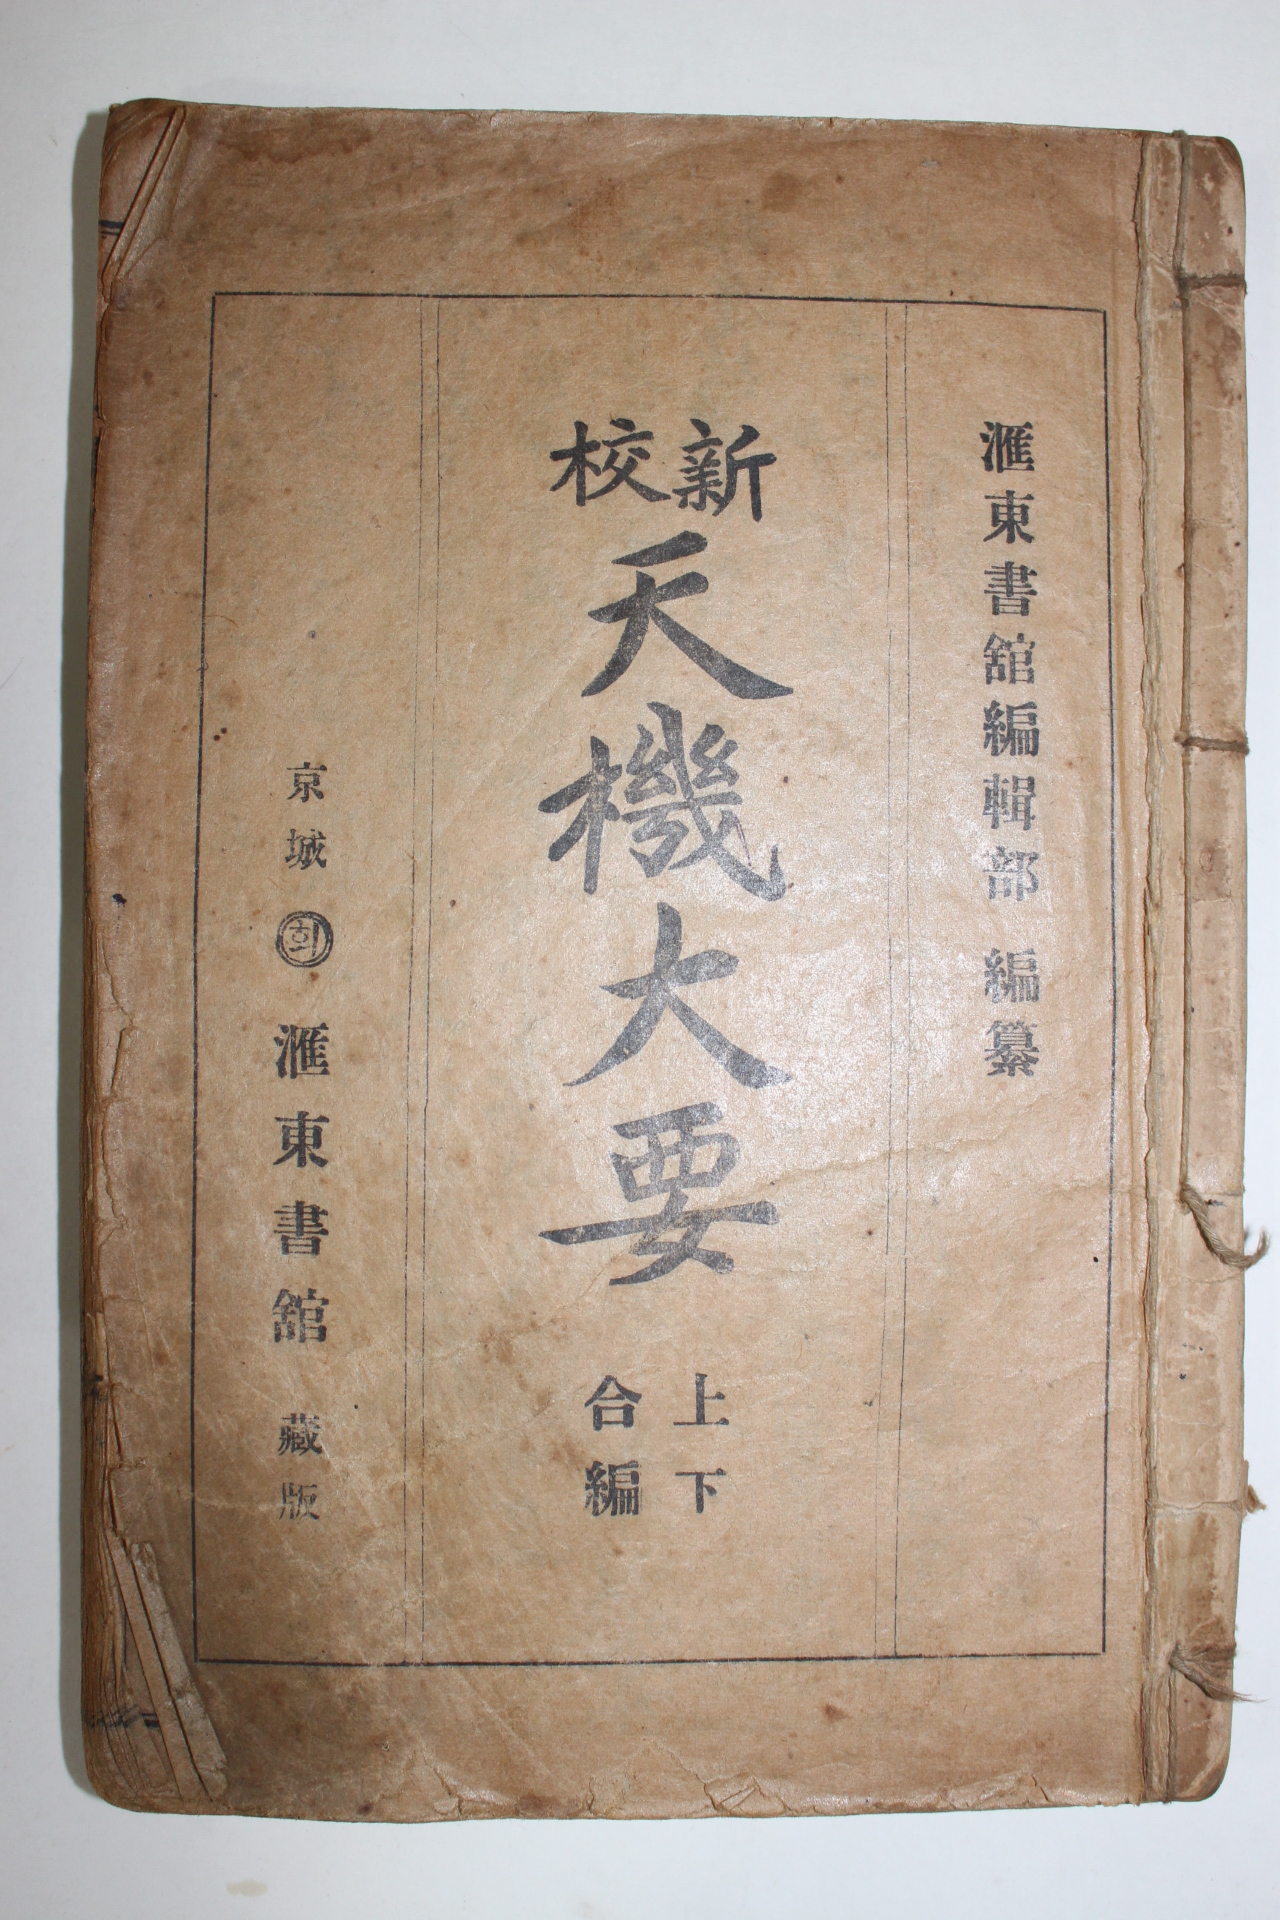 滙東書舘編輯部 編纂
新校
天機大要
上下
合編
京城 회 滙東書舘 藏版